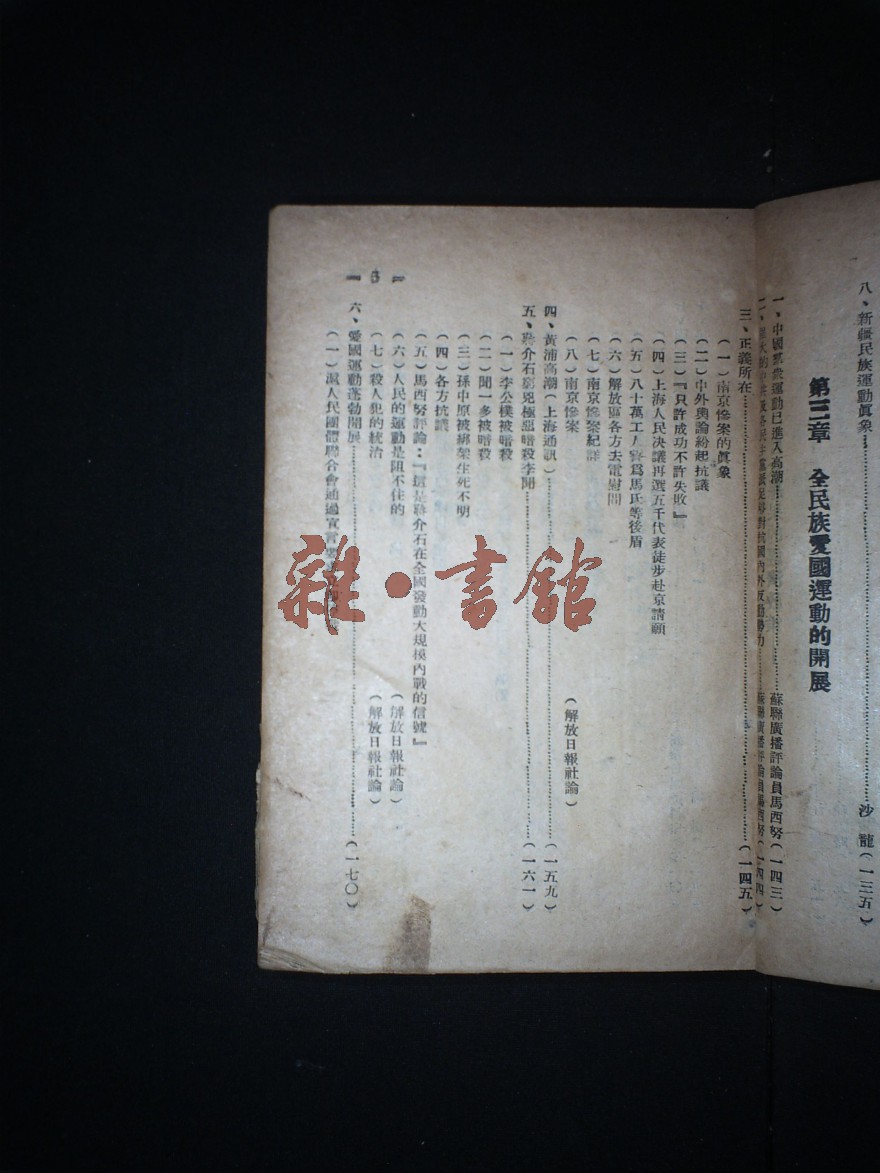 八、新疆民族運動眞象……沙　龍（一三五）
第三章　全民族愛國運動的開展
一、中國羣衆運動已進入高潮……蘇聯廣播評論員馬西努（一四三）
對抗國內外反動勢力……蘇聯廣播評論員馬西努（一四四）
三、正義所在……（一四五）
（一）南京慘案的眞象
（二）中外輿論紛起抗議
（三）『只許成功不許失敗』
（四）上海人民決議再選五千代表徒步赴京請願
（五）八十萬工人誓爲馬氏等後盾
（六）解放區各方去電慰問
（七）南京慘案紀詳
（八）南京慘案　（解放日報社論）
四、黃浦高潮（上海通訊）……（一五九）
五、蔣介石窮兇極惡暗殺李聞……（一六一）
（一）李公樸被暗殺
（二）聞一多被暗殺
（三）孫中原被綁架生死不明
（四）各方抗議
（五）馬西努評論：『這是蔣介石在全國發動大規模內戰的信號』
（六）人民的運動是阻不住的　（解放日報社論）
（七）殺人犯的統治　（解放日報社論）
六、愛國運動蓬勃開展……（一七〇）
（一）滬人民團體聯合會通過宣言
雜·書館